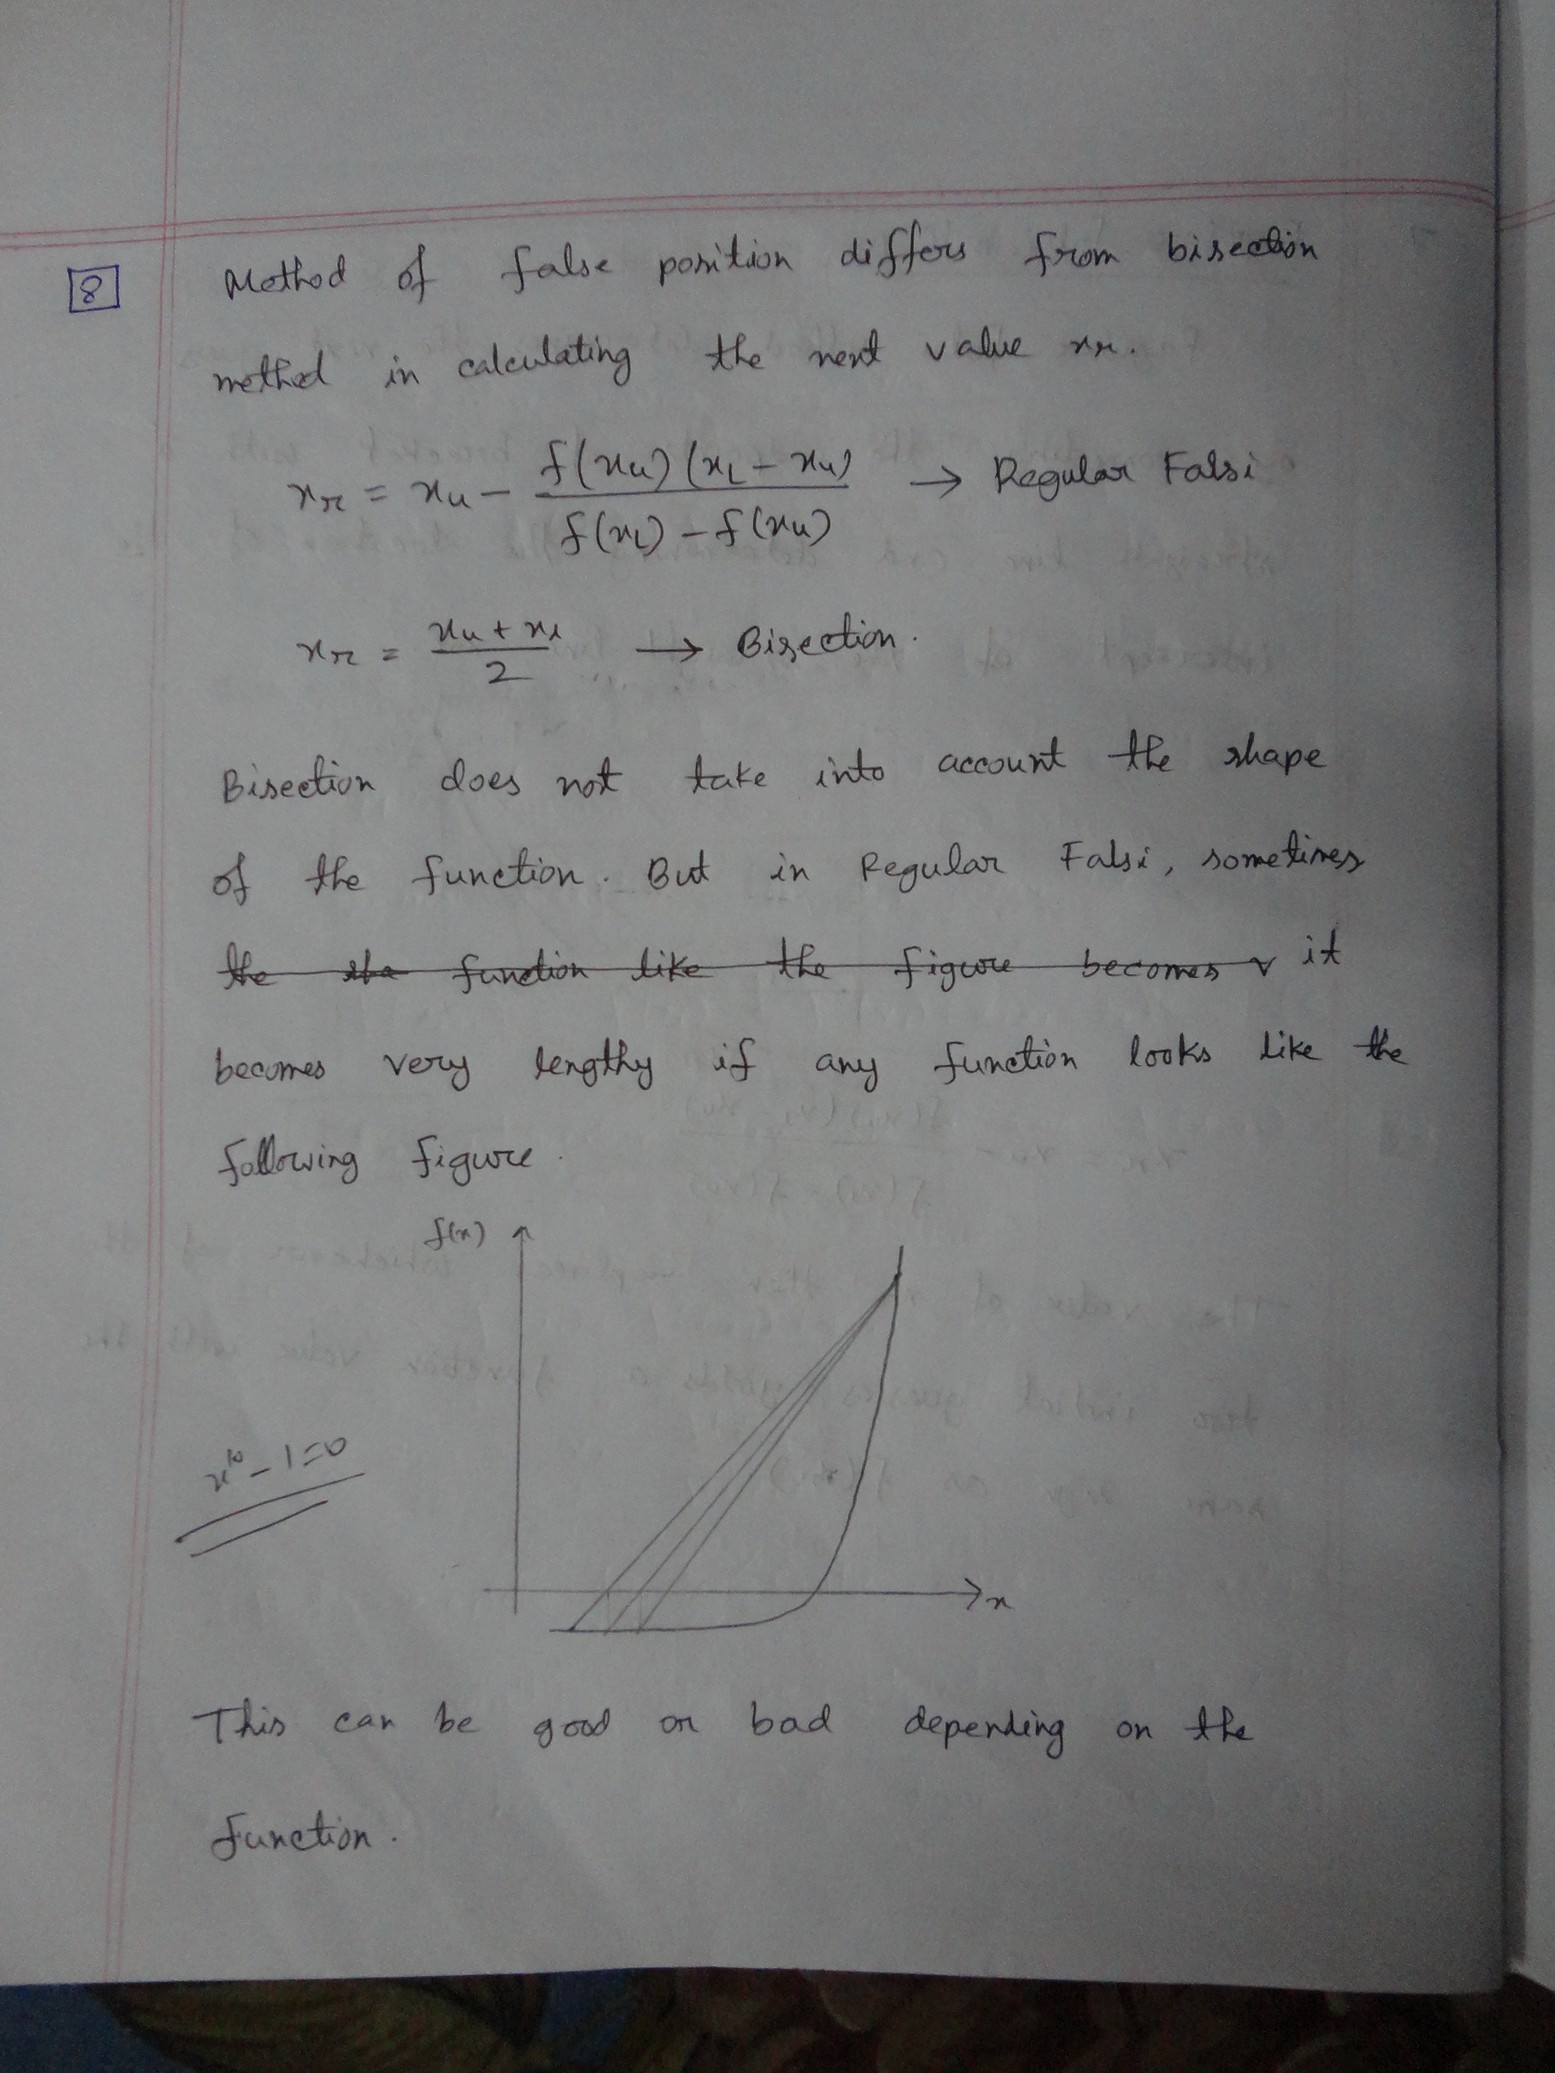 8
Method of false position differs from bisection
method in calculating the next value xr.
xr = xu - f(xu)(xL - xu) / f(xL) - f(xu) → Regular Falsi
xr = xu + xl / 2 → Bisection.
Bisection does not take into account the shape
of the function. But in Regular Falsi, sometimes
the sha function like the figure becomes v it
becomes very lengthy if any function looks like the
following figure.
f(x)
x^10 - 1 = 0
x
This can be good or bad depending on the
function.